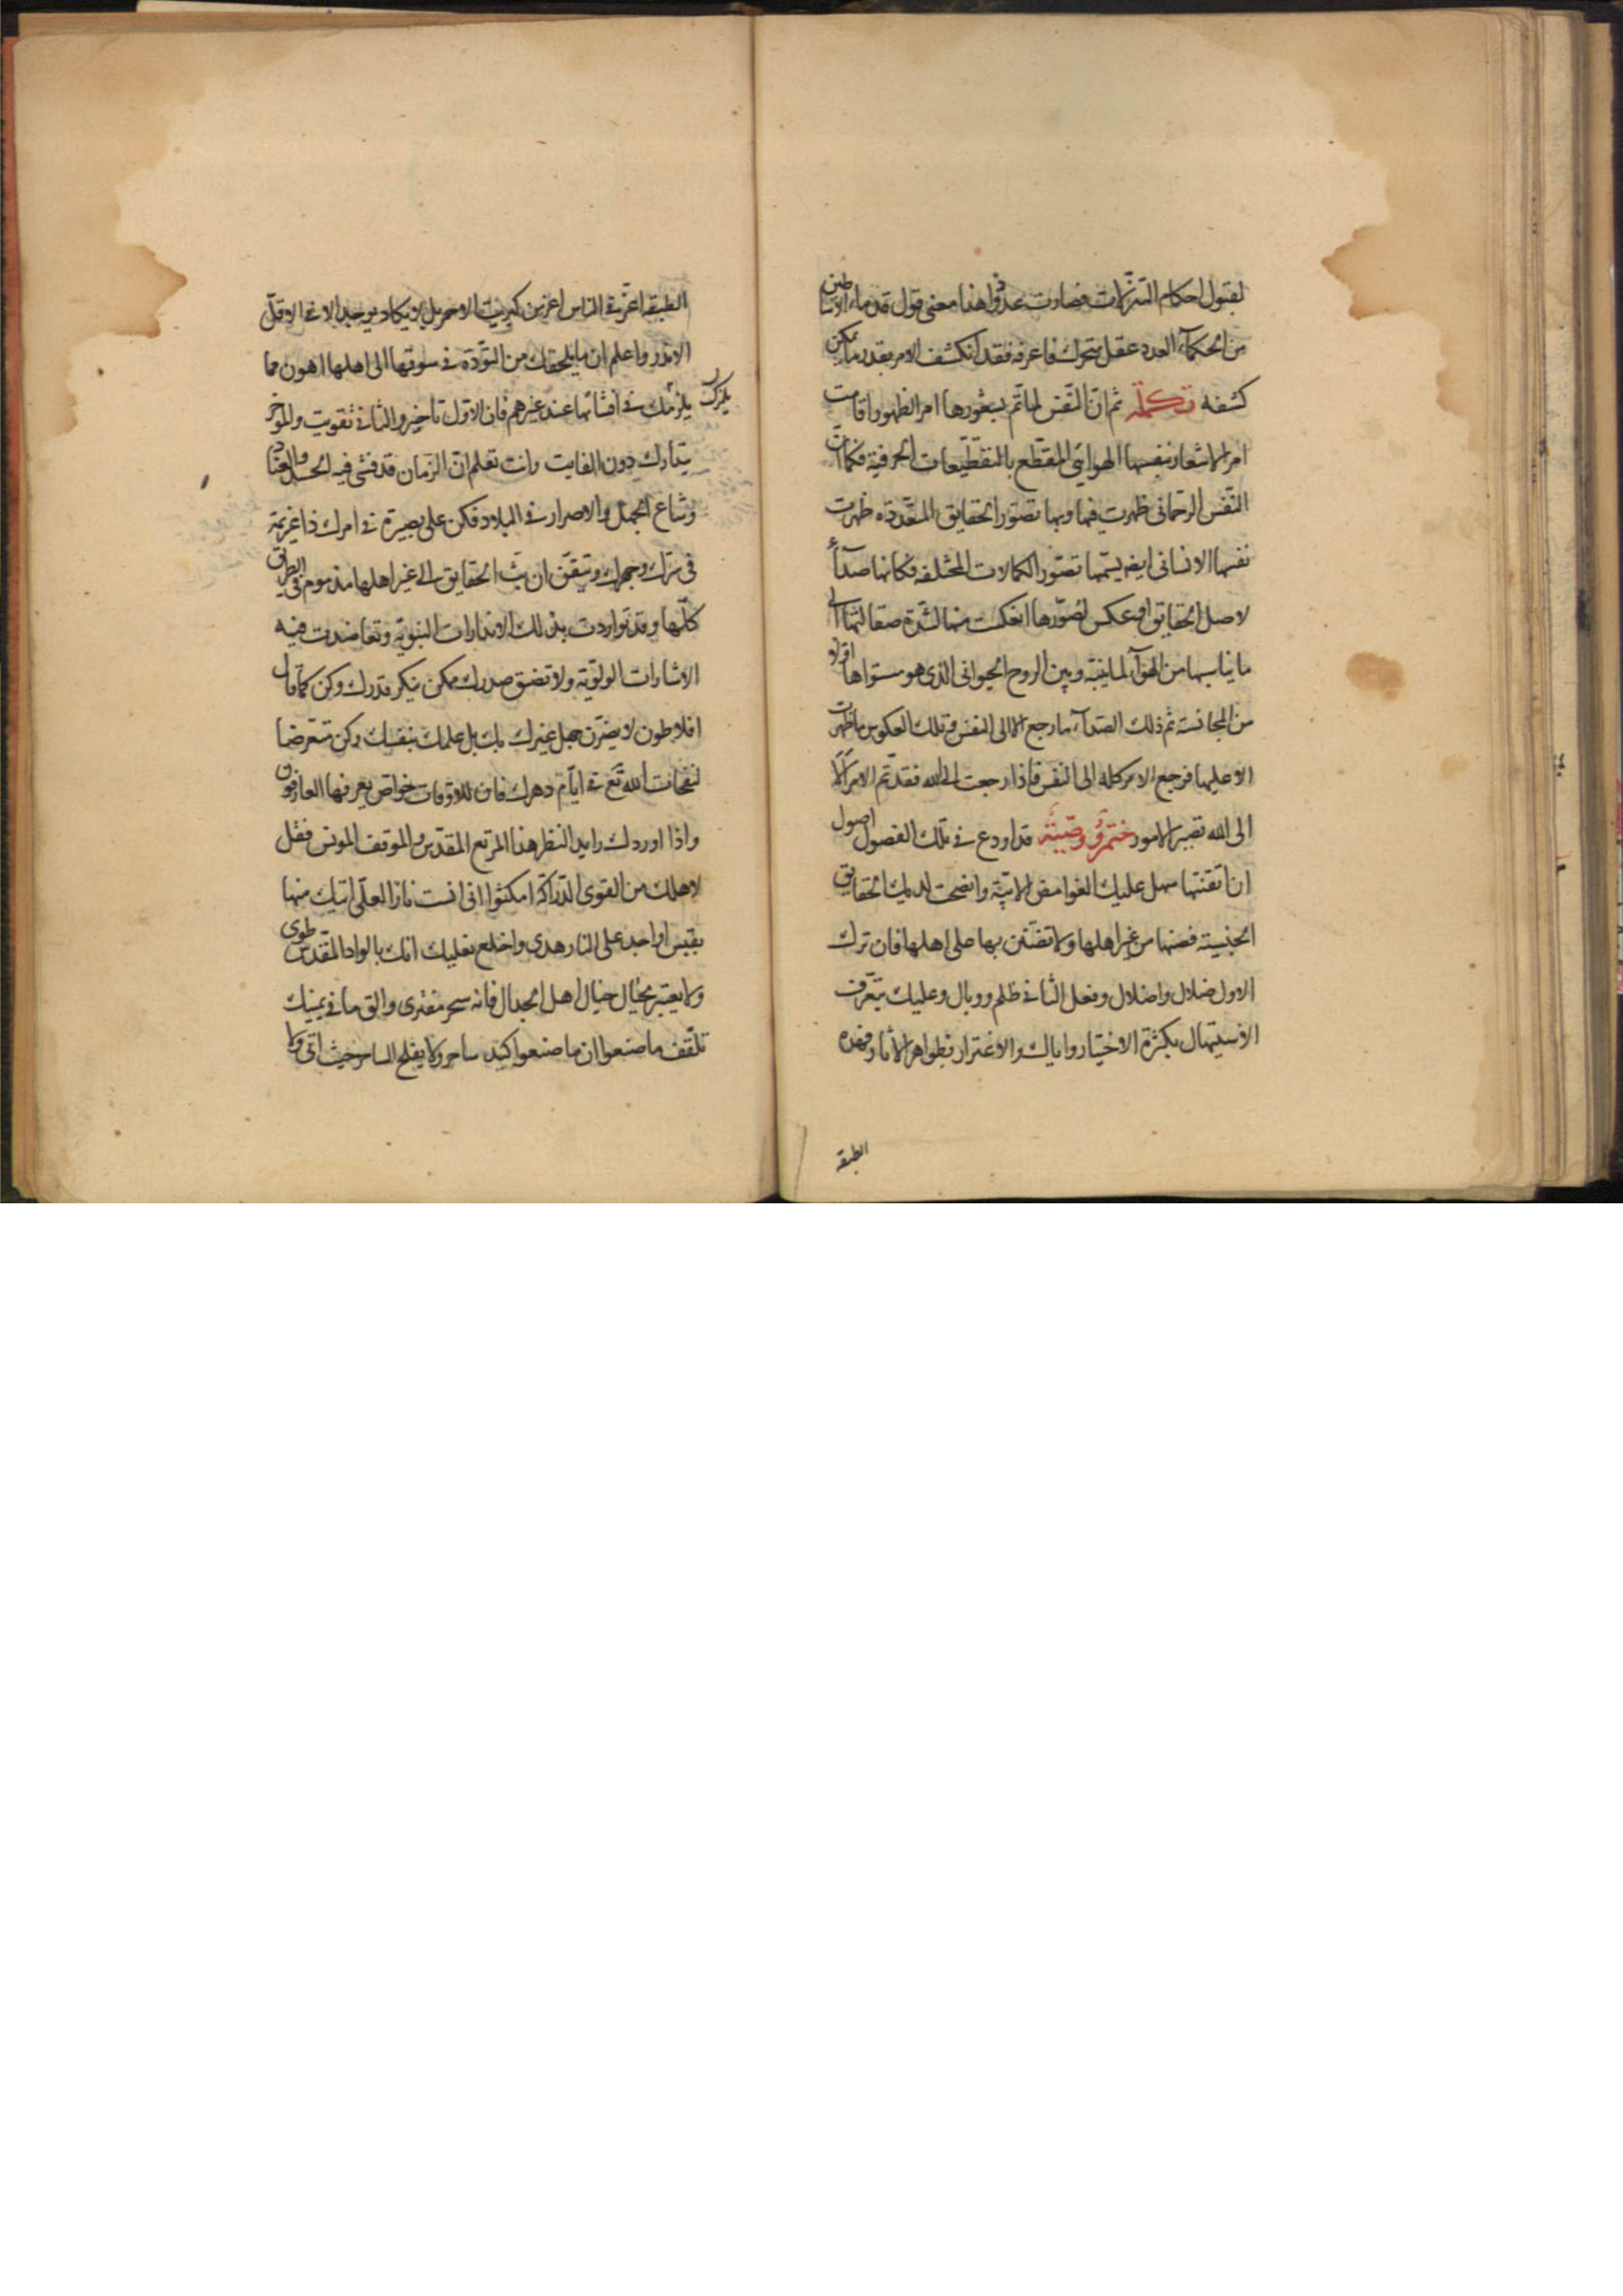 لقبول احكام التنزلات فصارت عددا وهذا معنى قول قدماء الاساطين
من الحكماء العدد عقل متحرك فاعرفه فقد انكشف الامر بقدر ما يمكن
كشفه تكملة ثم ان النفس لما تم بشعورها امر الظهور اقامت
امر الاشعار بنفسها الهوائي المقطع بالتقطيعات الحرفية فكما ان
النفس الرحمانى ظهرت فيها وبها تصور الحقايق المتعددة ظهرت
نفسها الانسانى ايضا تصور الكمالات المختلفة فكانها صدآء
لاصل الحقايق او عكس لصورها انعكست منها لشدة صقالتها الى
ما يناسبها من الهوآء لما بينه وبين الروح الحيوانى الذى هو مستواها
من المجانسة ثم ذلك الصدآء ما رجع الا الى النفس وتلك العكوس ما ظهرت
الا عليها فرجع الامر كله الى النفس فاذا رجعت الى الله فقد تم الامر الا
الى الله تصير الامور ختم ووصية قد اودع فى تلك الفصول اصول
ان اتقنتها سهل عليك الغوامض الابية واتضحت لديك الحقايق
الجنسية فصنها من غير اهلها ولا تضنن بها على اهلها فان ترك
الاول ضلال واضلال وفعل الثانى ظلم ووبال وعليك بتعرف
الاستيهال بكثرة الاختبار واياك والاغترار بظواهر الآثار فهذه
الطبقة
الطبقة اعز فى الناس اعز من كبريت الاحمر بل لا يكاد يوجد الا فى الاقل
الاندر واعلم ان ما يلحقك من التؤدة فى سوقها الى اهلها اهون مما
يلزمك فى افشائها عند غيرهم فان الاول تاخير والثانى تفويت والمؤخر
يتدارك دون الفايت وانت تعلم ان الزمان قد فشى فيه الحسد والعناد
وشاع الجهل والاصرار فى البلاد فكن على بصيرة فى امرك ذا عزيمة
فى سرك وجهرك وتيقن ان بث الحقايق الى غير اهلها مذموم فى الطرق
كلها وقد تواردت بذلك الانذارات النبوية وتعاضدت فيه
الاشارات الولوية ولا تضيق صدرك ممكن ينكر قدرك وكن كما قال
افلاطون لا يضرن جهل غيرك بك بل علمك بنفسك وكن متعرضا
لنفحات الله تع فى ايام دهرك فان للاوقات خواص يعرفها العارفون
واذا اوردك رايد النظر هذا المربع المقدس والموقف المونس فقل
لاهلك من القوى الدراكة امكثوا انى انست نارا لعلى اتيك منها
بقبس او اجد على النار هدى واخلع نعليك انك بالواد المقدس طوى
ولا يعتبر بخيال اهل الجدال فانه سحر مفترى والق ما فى يمينك
تلقف ما صنعوا ان ما صنعوا كيد ساحر ولا يفلح الساحر حيث اتى ولا